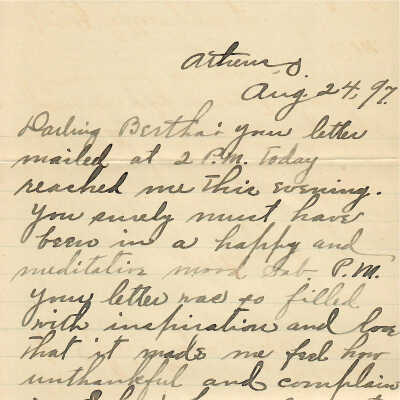 Athens O.
Aug. 24, 97.
Darling Bertha: your letter
mailed at 2 P.M. today
reached me this evening.
You surely must have
been in a happy and
meditative mood Sab. P.M.
Your letter was so filled
with inspiration and love
that it made me feel how
unthankful and complain